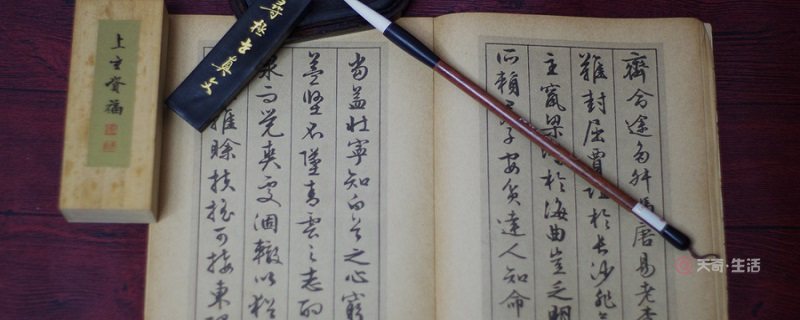 齊命途多舛馮唐易老李
難封屈賈誼於長沙非
主竄梁鴻於海曲豈乏明
所賴君子安貧達人知命
當益壯寧知白首之心窮
益堅不墜青雲之志酌
泉而覺爽處涸轍以猶
雖賒扶搖可接東隅
天奇·生活